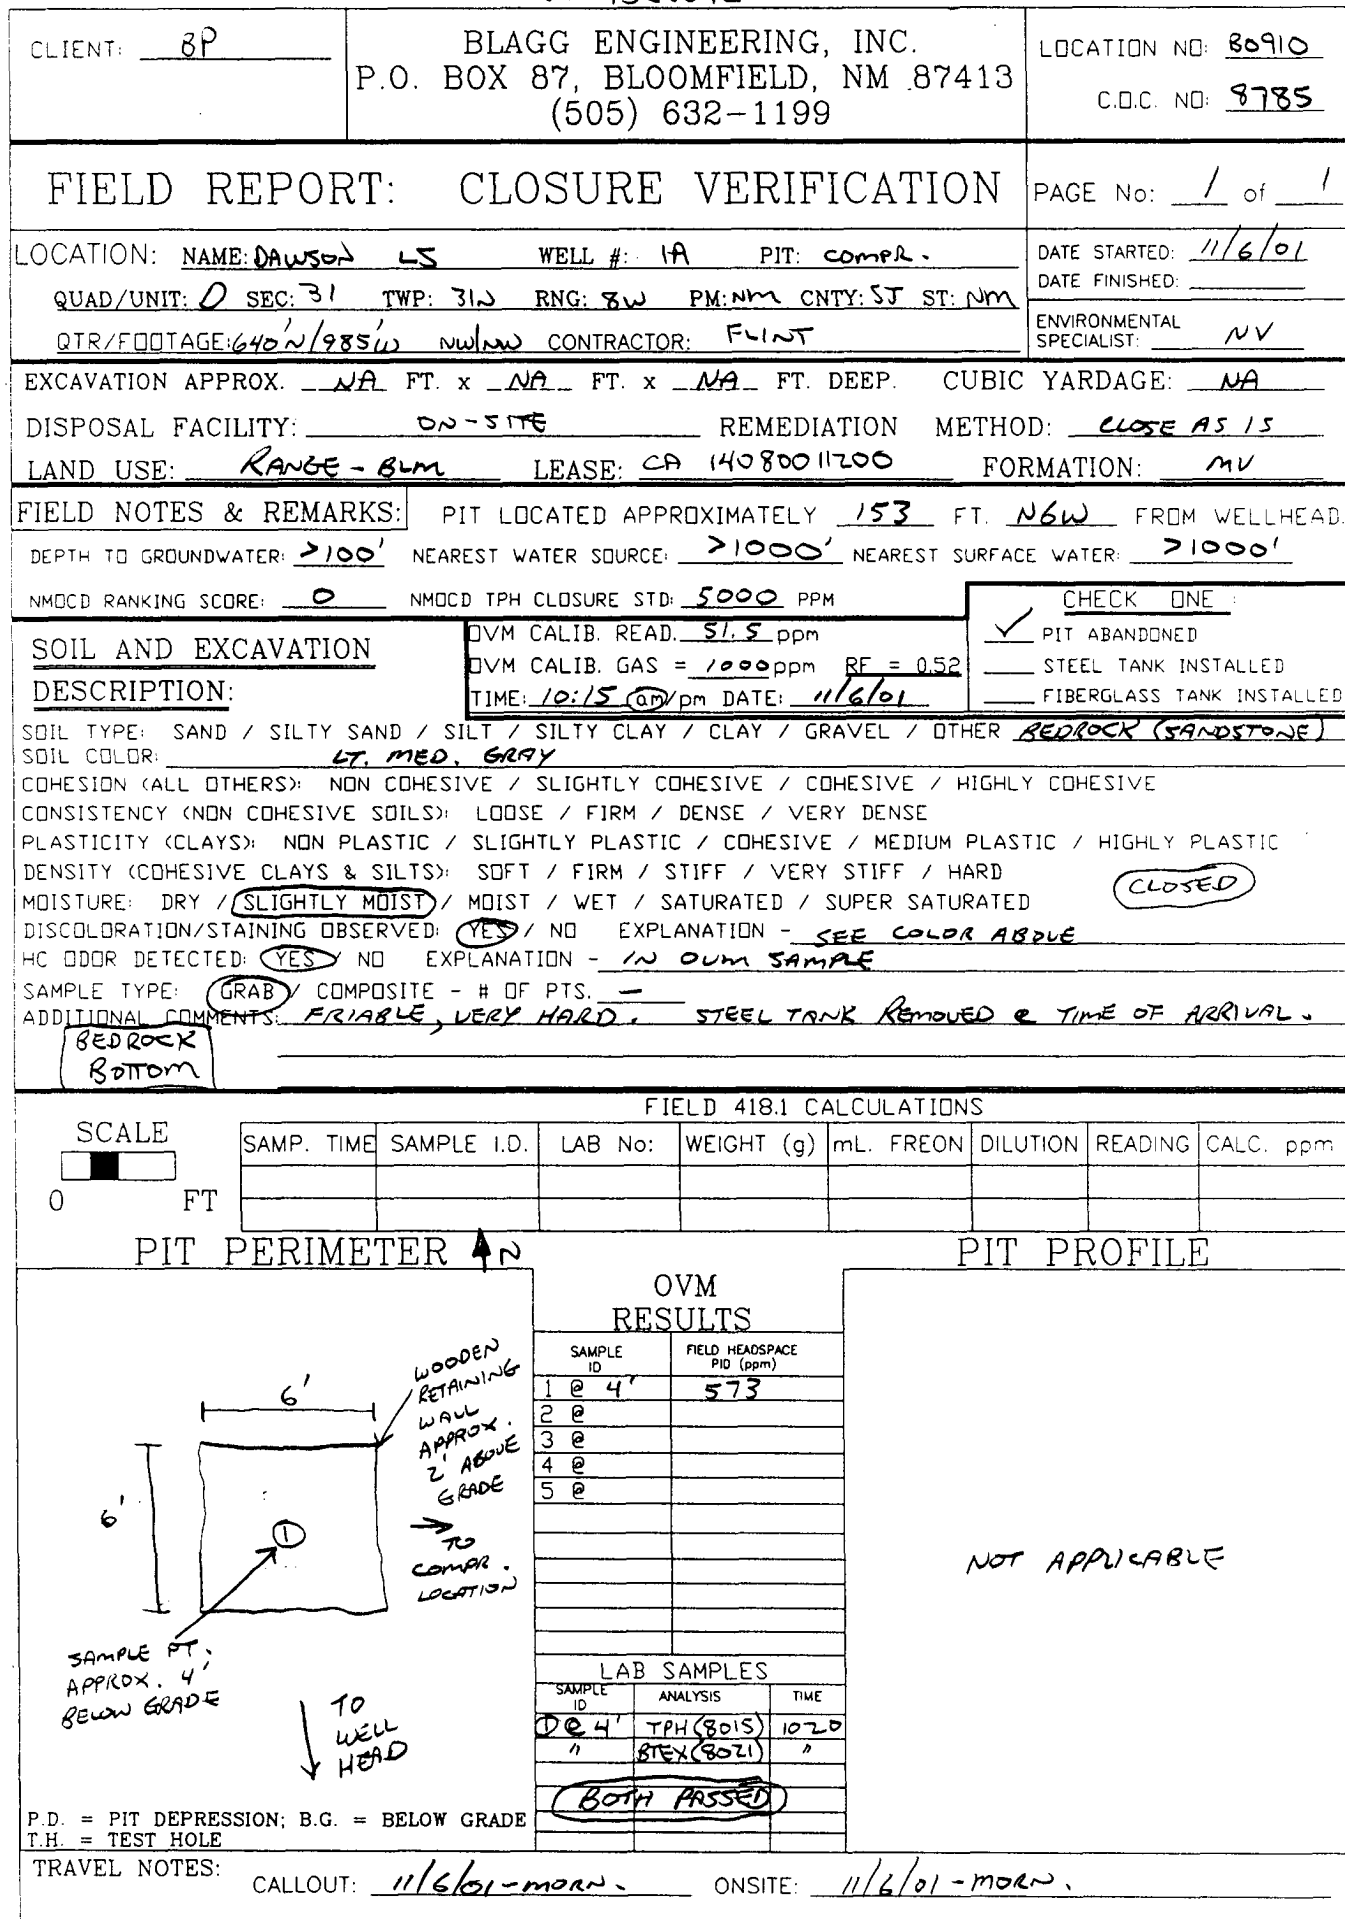 CLIENT: BP
BLAGG ENGINEERING, INC.
P.O. BOX 87, BLOOMFIELD, NM 87413
(505) 632-1199
LOCATION NO: B0910
C.O.C. NO: 8785
FIELD REPORT: CLOSURE VERIFICATION
PAGE No: 1 of 1
LOCATION: NAME: DAWSON LS WELL #: 1A PIT: COMPR.
QUAD/UNIT: D SEC: 31 TWP: 31N RNG: 8W PM: NM CNTY: SJ ST: NM
QTR/FOOTAGE: 640'N/985'W NW/NW CONTRACTOR: FLINT
DATE STARTED: 11/6/01
DATE FINISHED:
ENVIRONMENTAL
SPECIALIST: NV
EXCAVATION APPROX. NA FT. x NA FT. x NA FT. DEEP. CUBIC YARDAGE: NA
DISPOSAL FACILITY: ON-SITE REMEDIATION METHOD: CLOSE AS IS
LAND USE: RANGE - BLM LEASE: CA 14080011200 FORMATION: MV
FIELD NOTES & REMARKS: PIT LOCATED APPROXIMATELY 153 FT. N6W FROM WELLHEAD.
DEPTH TO GROUNDWATER: >100' NEAREST WATER SOURCE: >1000' NEAREST SURFACE WATER: >1000'
NMOCD RANKING SCORE: 0 NMOCD TPH CLOSURE STD: 5000 PPM
CHECK ONE :
✓ PIT ABANDONED
STEEL TANK INSTALLED
FIBERGLASS TANK INSTALLED
SOIL AND EXCAVATION
DESCRIPTION:
OVM CALIB. READ. 51.5 ppm
OVM CALIB. GAS = 1000 ppm RF = 0.52
TIME: 10:15 am/pm DATE: 11/6/01
SOIL TYPE: SAND / SILTY SAND / SILT / SILTY CLAY / CLAY / GRAVEL / OTHER BEDROCK (SANDSTONE)
SOIL COLOR: LT. MED. GRAY
COHESION (ALL OTHERS): NON COHESIVE / SLIGHTLY COHESIVE / COHESIVE / HIGHLY COHESIVE
CONSISTENCY (NON COHESIVE SOILS): LOOSE / FIRM / DENSE / VERY DENSE
PLASTICITY (CLAYS): NON PLASTIC / SLIGHTLY PLASTIC / COHESIVE / MEDIUM PLASTIC / HIGHLY PLASTIC
DENSITY (COHESIVE CLAYS & SILTS): SOFT / FIRM / STIFF / VERY STIFF / HARD
CLOSED
MOISTURE: DRY / SLIGHTLY MOIST / MOIST / WET / SATURATED / SUPER SATURATED
DISCOLORATION/STAINING OBSERVED: YES / NO EXPLANATION - SEE COLOR ABOVE
HC ODOR DETECTED: YES / NO EXPLANATION - IN OVM SAMPLE
SAMPLE TYPE: GRAB / COMPOSITE - # OF PTS. —
ADDITIONAL COMMENTS: FRIABLE, VERY HARD. STEEL TANK REMOVED @ TIME OF ARRIVAL.
BEDROCK
BOTTOM
FIELD 418.1 CALCULATIONS
SCALE
0 FT
SAMP. TIME SAMPLE I.D. LAB No: WEIGHT (g) mL. FREON DILUTION READING CALC. ppm
PIT PERIMETER N
PIT PROFILE
OVM
RESULTS
SAMPLE ID FIELD HEADSPACE PID (ppm)
1 @ 4' 573
2 @
3 @
4 @
5 @
WOODEN
RETAINING
WALL
APPROX.
2' ABOVE
GRADE
6'
6'
1
TO
COMPR.
LOCATION
NOT APPLICABLE
SAMPLE PT.
APPROX. 4'
BELOW GRADE
TO
WELL
HEAD
LAB SAMPLES
SAMPLE ID ANALYSIS TIME
1 @ 4' TPH (8015) 1020
" BTEX (8021) "
BOTH PASSED
P.D. = PIT DEPRESSION; B.G. = BELOW GRADE
T.H. = TEST HOLE
TRAVEL NOTES:
CALLOUT: 11/6/01 - MORN. ONSITE: 11/6/01 - MORN.